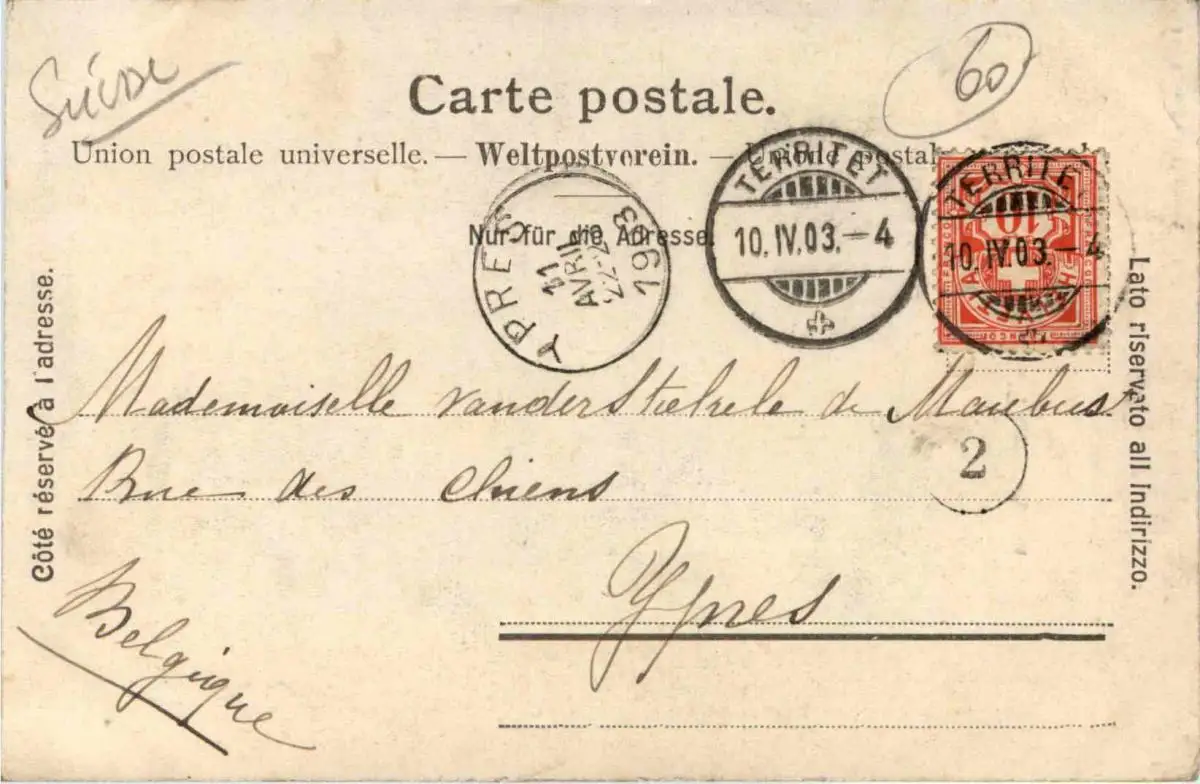 Suisse
60
Carte postale.
Union postale universelle. — Weltpostverein. — Unione postale
Nur für die Adresse.
YPRES
11
AVRIL
22-2
1903
TERRITET
10. IV. 03. – 4
TERRITET
10. IV. 03. – 4
10
Côté réservé à l'adresse.
Lato riservato all Indirizzo.
Mademoiselle vanderStichele de Maubus
2
Rue des Chiens
Ypres
Belgique